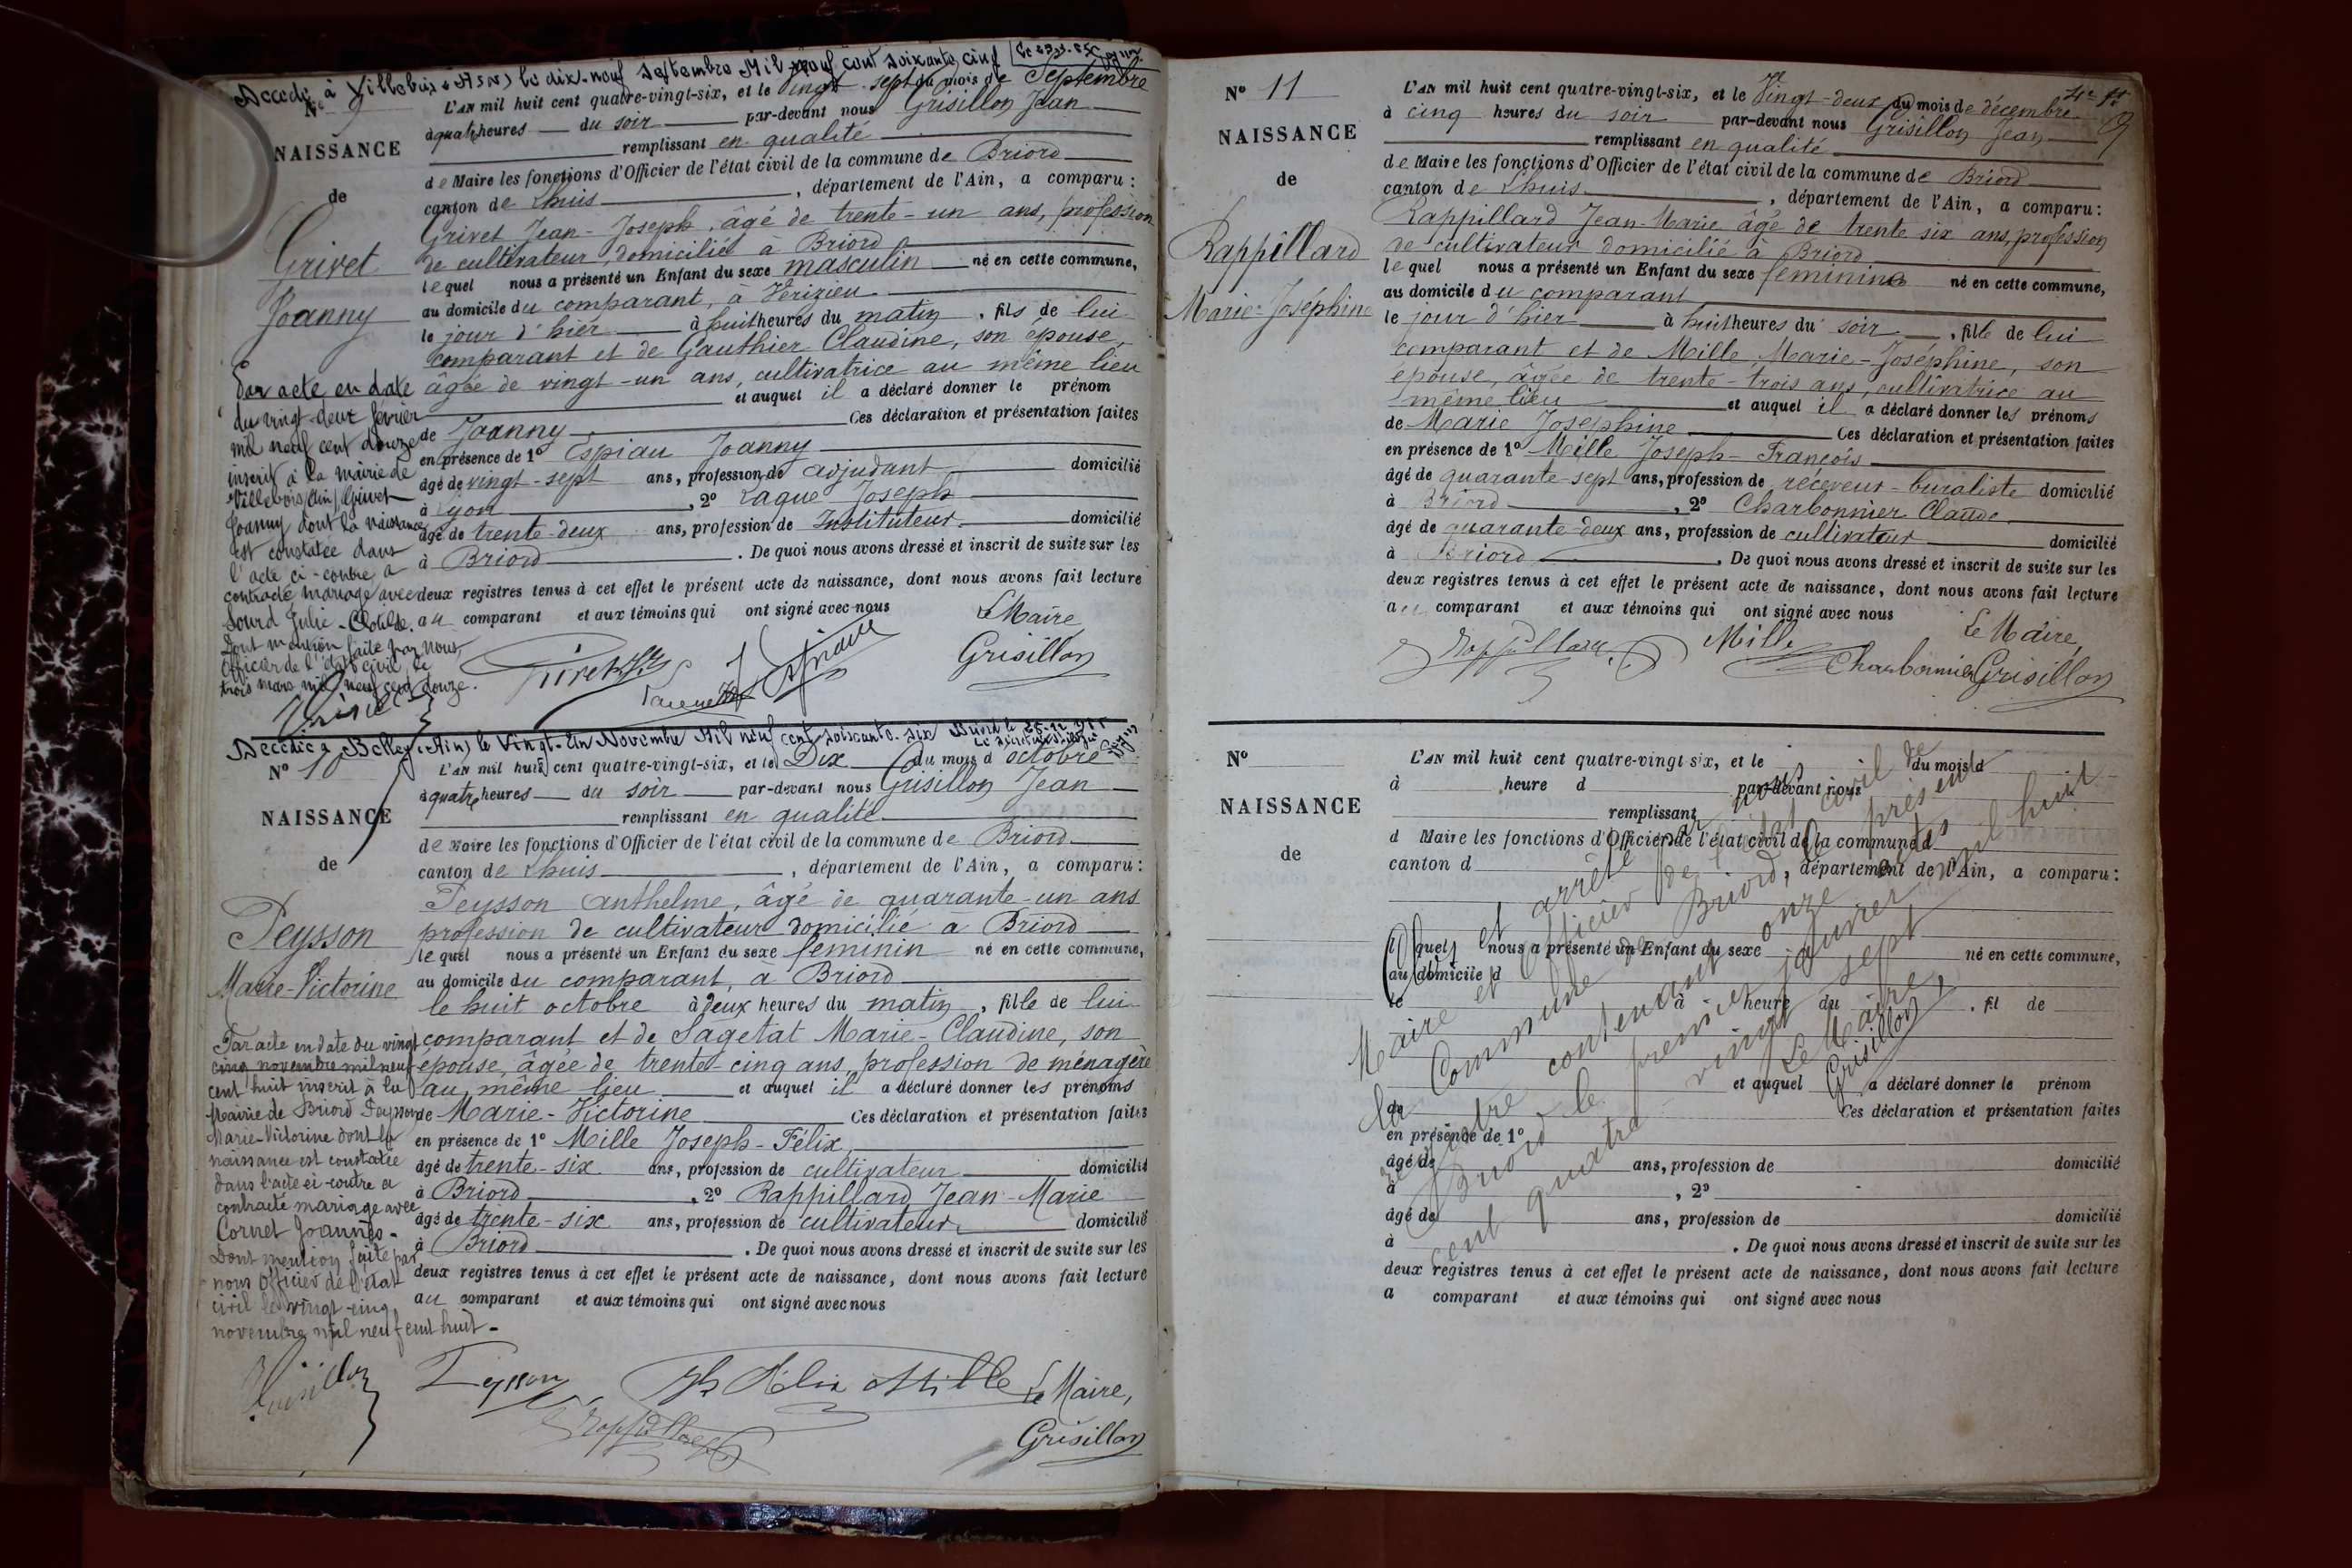 Décédé à Villebois (Ain) le dix-neuf Septembre Mil neuf cent soixante cinq
N° 9
NAISSANCE
de
Grivet
Joanny
Par acte en date
du vingt-deux février
mil neuf cent douze
inscrit à la mairie de
Villebois (Ain) Grivet
Joanny dont la naissance
est constatée dans
l'acte ci-contre a
contracté mariage avec
Sourd Julie-Clotilde.
Dont mention faite par nous
Officier de l'état civil, le
trois mars mil neuf cent douze.
L'AN mil huit cent quatre-vingt-six, et le Vingt-sept du mois de Septembre
à quatre heures du soir par-devant nous Grisillon Jean
remplissant en qualité
de Maire les fonctions d'Officier de l'état civil de la commune de Briord
canton de Lhuis, département de l'Ain, a comparu :
Grivet Jean-Joseph, âgé de trente-un ans, profession
de cultivateur, domicilié à Briord
lequel nous a présenté un Enfant du sexe masculin né en cette commune,
au domicile du comparant, à Vérizieu
le jour d'hier à huit heures du matin, fils de lui
comparant et de Gauthier Claudine, son épouse,
âgée de vingt-un ans, cultivatrice au même lieu
et auquel il a déclaré donner le prénom
de Joanny. Ces déclaration et présentation faites
en présence de 1° Espiau Joanny
âgé de vingt-sept ans, profession de adjudant domicilié
à Lyon, 2° Laque Joseph
âgé de trente-deux ans, profession de Instituteur domicilié
à Briord. De quoi nous avons dressé et inscrit de suite sur les
deux registres tenus à cet effet le présent acte de naissance, dont nous avons fait lecture
au comparant et aux témoins qui ont signé avec nous
Le Maire
Grisillon
Décédée à Belley (Ain) le Vingt-Un Novembre Mil neuf cent soixante-six
N° 10
NAISSANCE
de
Peysson
Marie-Victorine
Par acte en date du vingt
cinq novembre mil neuf
cent huit inscrit à la
Mairie de Briord Peysson
Marie-Victorine dont la
naissance est constatée
dans l'acte ci-contre a
contracté mariage avec
Cornet Joannès-
Dont mention faite par
nous Officier de l'état
civil le vingt-cinq
novembre mil neuf cent huit-
Grisillon
L'AN mil huit cent quatre-vingt-six, et le Dix du mois d'octobre
à quatre heures du soir par-devant nous Grisillon Jean
remplissant en qualité
de Maire les fonctions d'Officier de l'état civil de la commune de Briord
canton de Lhuis, département de l'Ain, a comparu :
Peysson Anthelme, âgé de quarante-un ans
profession de cultivateur domicilié à Briord
lequel nous a présenté un Enfant du sexe féminin né en cette commune,
au domicile du comparant, à Briord
le huit octobre à deux heures du matin, fille de lui
comparant et de Sagetat Marie-Claudine, son
épouse, âgée de trente-cinq ans, profession de ménagère
au même lieu et auquel il a déclaré donner les prénoms
de Marie-Victorine Ces déclaration et présentation faites
en présence de 1° Mille Joseph-Félix
âgé de trente-six ans, profession de cultivateur domicilié
à Briord, 2° Rappillard Jean-Marie
âgé de trente-six ans, profession de cultivateur domicilié
à Briord. De quoi nous avons dressé et inscrit de suite sur les
deux registres tenus à cet effet le présent acte de naissance, dont nous avons fait lecture
au comparant et aux témoins qui ont signé avec nous
Peysson Jh Félix Mille Le Maire,
Rappillard Grisillon
N° 11
NAISSANCE
de
Rappillard
Marie-Joséphine
L'AN mil huit cent quatre-vingt-six, et le Vingt-deux du mois de décembre
à cinq heures du soir par-devant nous Grisillon Jean
remplissant en qualité
de Maire les fonctions d'Officier de l'état civil de la commune de Briord
canton de Lhuis, département de l'Ain, a comparu :
Rappillard Jean-Marie, âgé de trente six ans, profession
de cultivateur domicilié à Briord
lequel nous a présenté un Enfant du sexe féminin né en cette commune,
au domicile du comparant
le jour d'hier à huit heures du soir, fille de lui
comparant et de Mille Marie-Joséphine, son
épouse, âgée de trente-trois ans, cultivatrice au
même lieu et auquel il a déclaré donner les prénoms
de Marie Joséphine Ces déclaration et présentation faites
en présence de 1° Mille Joseph-François
âgé de quarante-sept ans, profession de receveur-buraliste domicilié
à Briord, 2° Charbonnier Claude
âgé de quarante-deux ans, profession de cultivateur domicilié
à Briord. De quoi nous avons dressé et inscrit de suite sur les
deux registres tenus à cet effet le présent acte de naissance, dont nous avons fait lecture
au comparant et aux témoins qui ont signé avec nous
Le Maire,
Rappillard Mille Charbonnier Grisillon
N°
NAISSANCE
de
L'AN mil huit cent quatre-vingt six, et le du mois d
à heure d par-devant nous
remplissant
d Maire les fonctions d'Officier de l'état civil de la commune d
canton d, département de l'Ain, a comparu :
l quel nous a présenté un Enfant du sexe né en cette commune,
au domicile d
le à heure du, fil de
et auquel a déclaré donner le prénom
de Ces déclaration et présentation faites
en présence de 1°
âgé de ans, profession de domicilié
à, 2°
âgé de ans, profession de domicilié
à. De quoi nous avons dressé et inscrit de suite sur les
deux registres tenus à cet effet le présent acte de naissance, dont nous avons fait lecture
a comparant et aux témoins qui ont signé avec nous
et arrêté par nous
Maire et Officier de l'état civil de
la Commune de Briord, le présent
registre contenant onze actes
Briord le premier janvier mil huit
cent quatre-vingt sept
Le Maire,
Grisillon